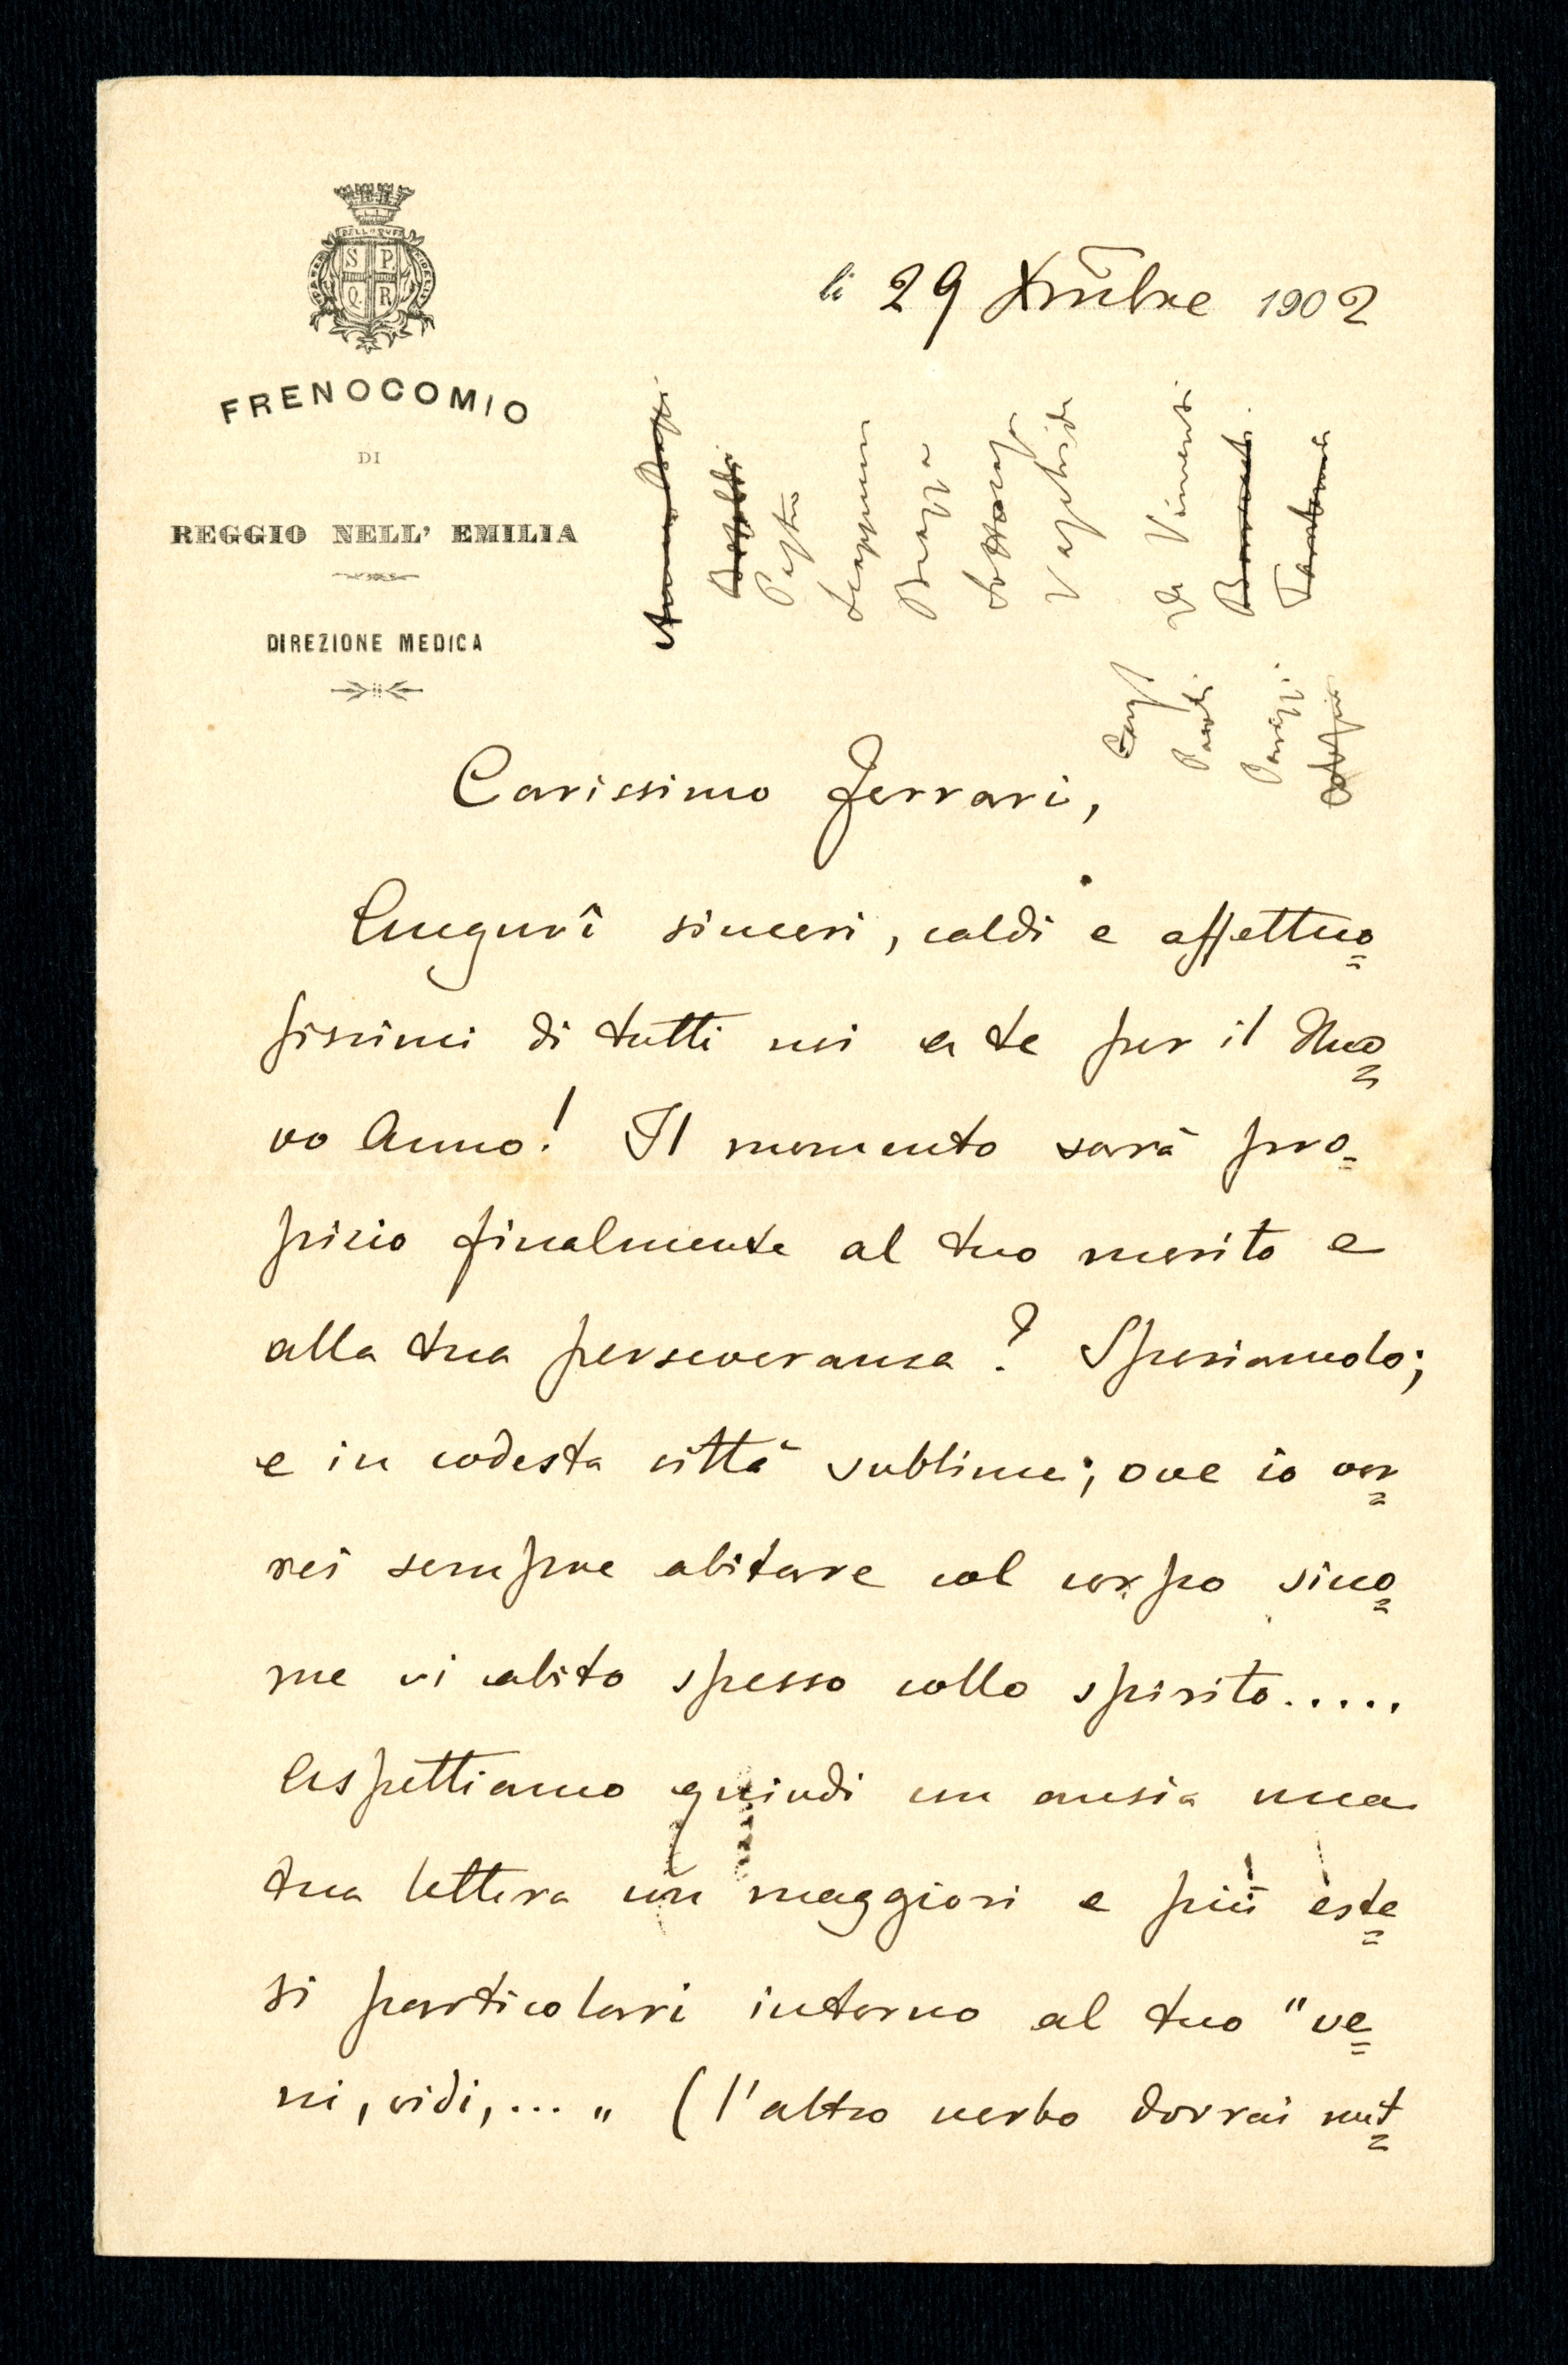 S P
Q R
FRENOCOMIO
DI
REGGIO NELL' EMILIA
DIREZIONE MEDICA
li 29 Xmbre 1902
Carissimo Ferrari,
Augurî sinceri, caldi e affettuo=
sissimi di tutti noi a te per il Nuo=
vo Anno! Il momento sarà pro=
pizio finalmente al tuo merito e
alla tua perseveranza? Speriamolo;
e in codesta città sublime; ove io vor=
rei sempre abitare col corpo sico=
me vi abito spesso collo spirito.....
Aspettiamo quindi con ansia una
tua lettera con maggiori e più este=
si particolari intorno al tuo "ve=
ni, vidi,... „ (l'altro verbo dovrai mut=